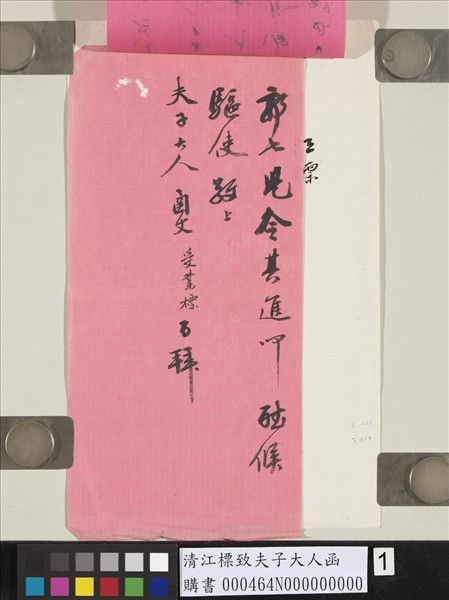 稟
郭七令其進叩聽候
驅使敬上
夫子大人函丈受業標百拜
清江標致夫子大人函
購書 000464N000000000
1